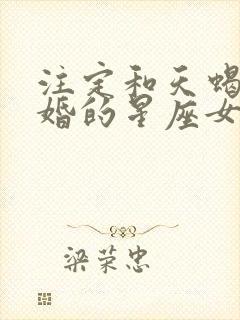 注定和天蝎
婚的星座女
梁荣忠